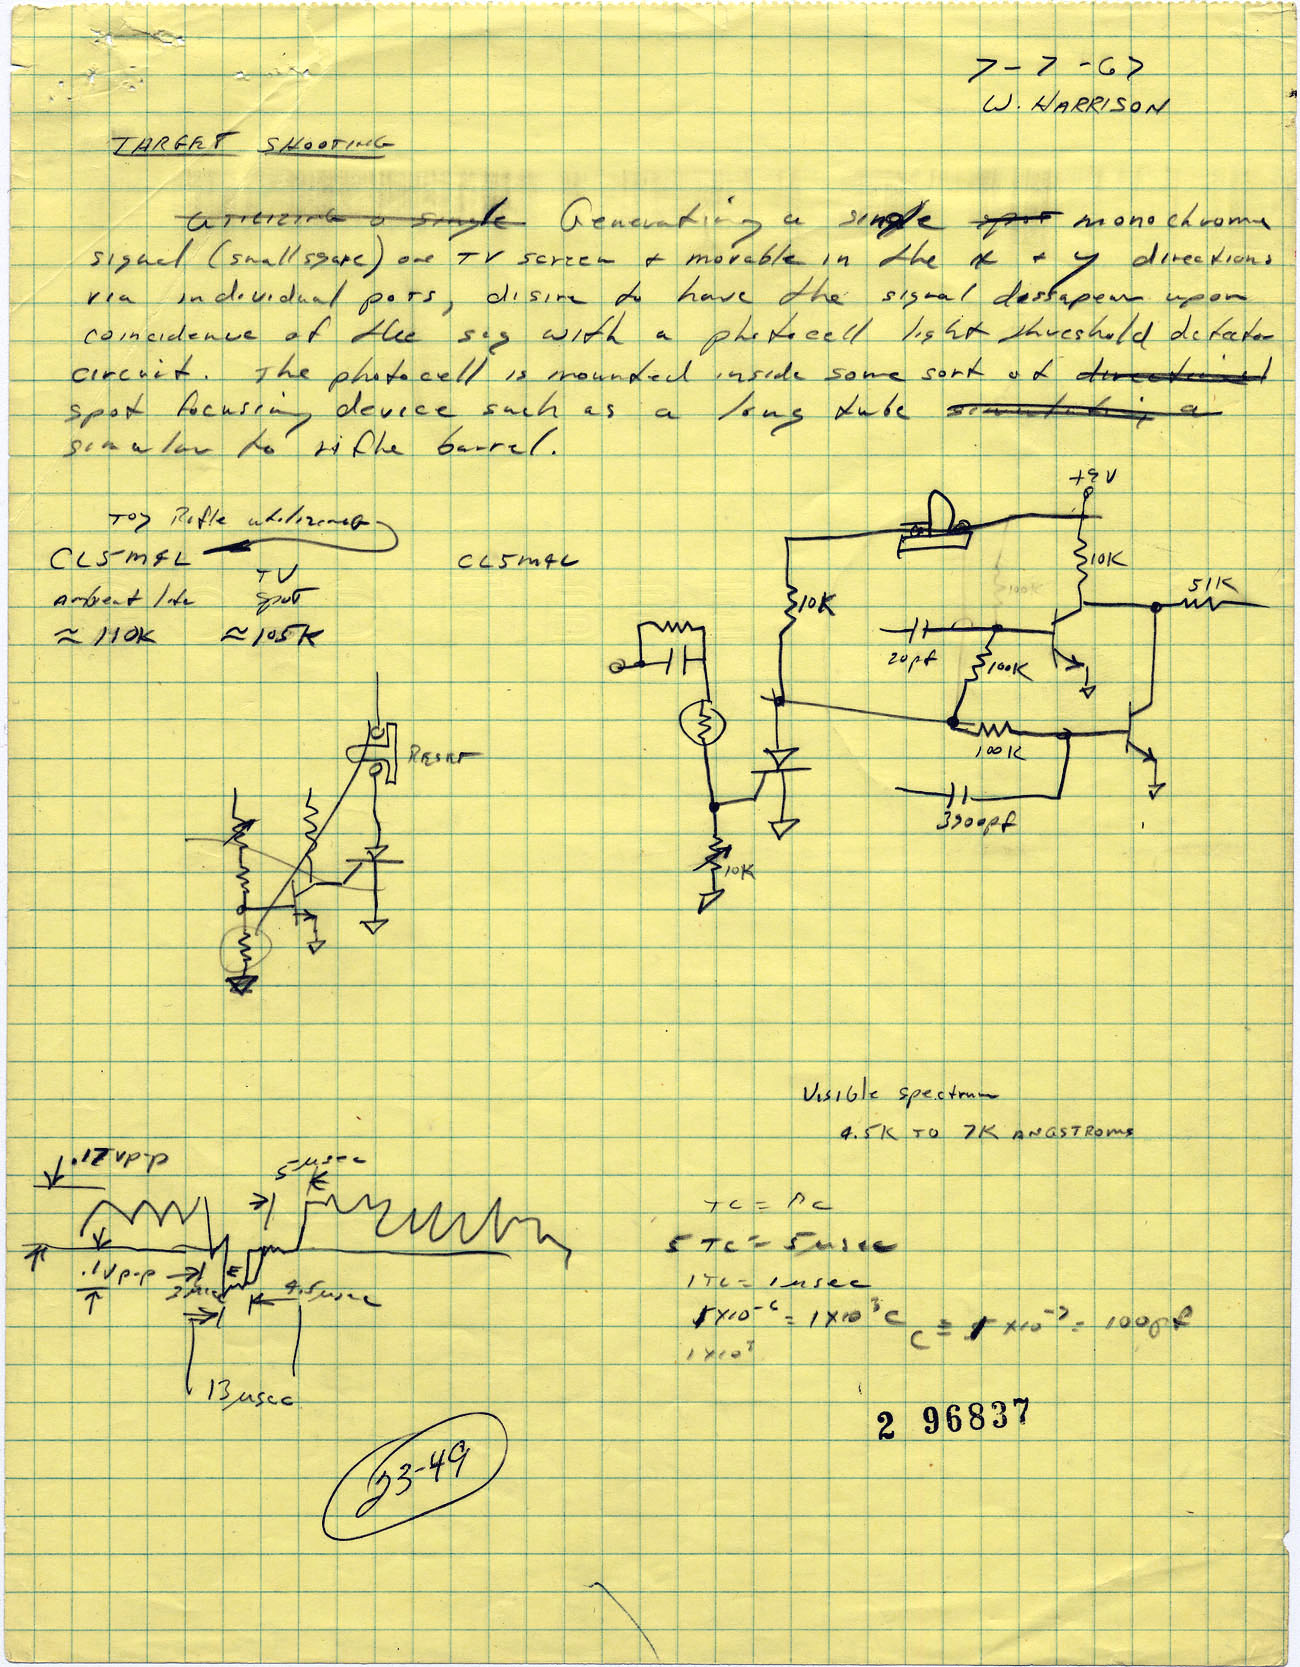 7-7-67
W. HARRISON
TARGET SHOOTING
Utilizing a single Generating a single spot monochrome
signal (small square) one TV screen + movable in the x + y directions
via individual pots, disire to have the signal dissapear upon
coincidence of the sig with a photocell light threshold detector
circuit. The photocell is mounted inside some sort of directional
spot focusing device such as a long tube simulating a
simular to rifle barrel.
+9V
Toy Rifle
CL5M4L
CL5M4L
TV
Ambient
spot
≈ 110K
≈ 105K
10K
51K
10K
100K
20pf
100K
100K
3900pf
RESET
10K
Visible spectrum
4.5K TO 7K ANGSTROMS
.17 VP-P
5 μsec
.1 VP-P
4.5 μsec
13 μsec
TC = RC
5 TC = 5 μsec
1 TC = 1 μsec
1x10⁻⁶ = 1x10³ C
C = 1 x10⁻⁹ = 100pf
1x10³
2 96837
23-49